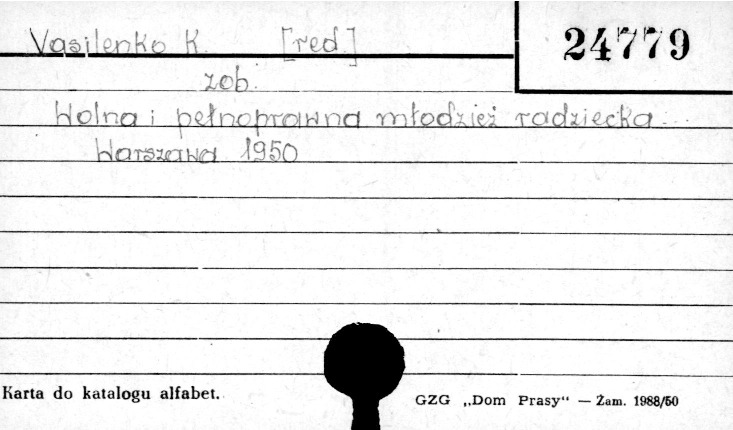 Vasilenko K. [red.]
24779
zob.
Wolna i pełnoprawna młodzież radziecka...
Warszawa 1950
Karta do katalogu alfabet.
GZG „Dom Prasy“ — Zam. 1988/50